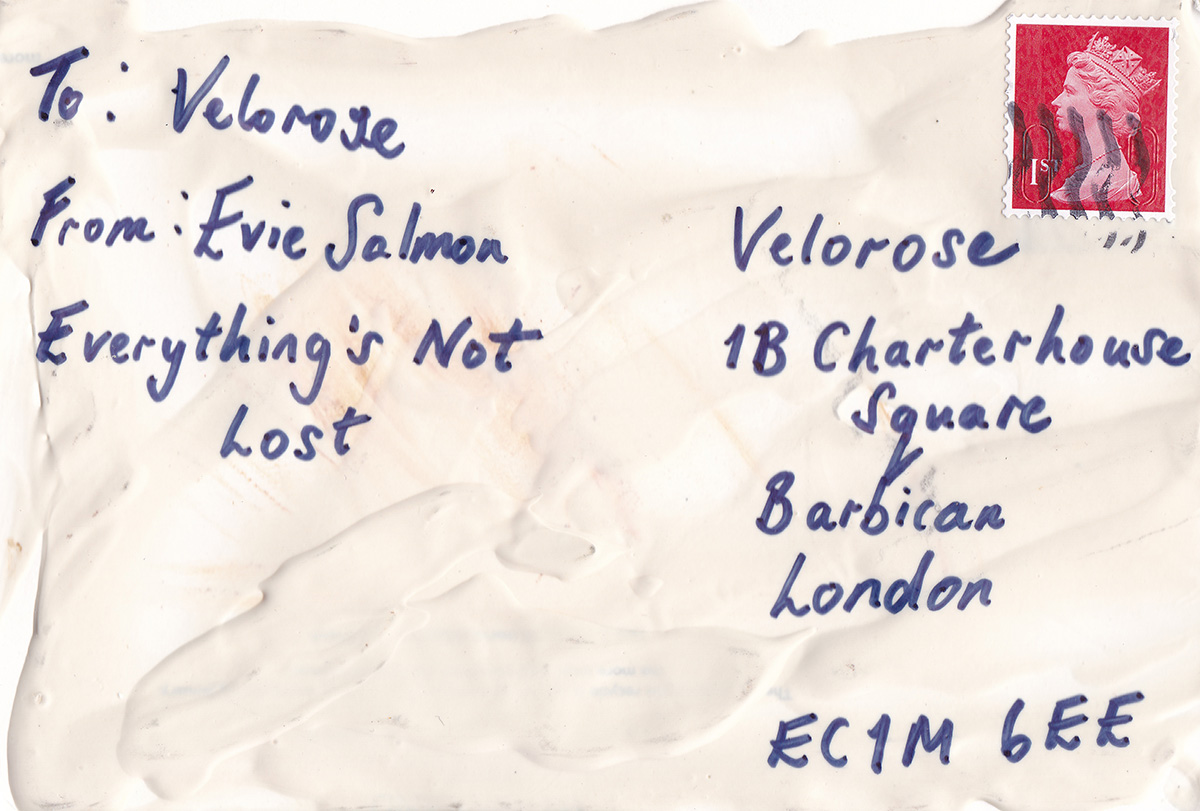 To: Velorose
From: Evie Salmon
Everything's Not
Lost
1ST
Velorose
1B Charterhouse
Square
Barbican
London
EC1M 6EE